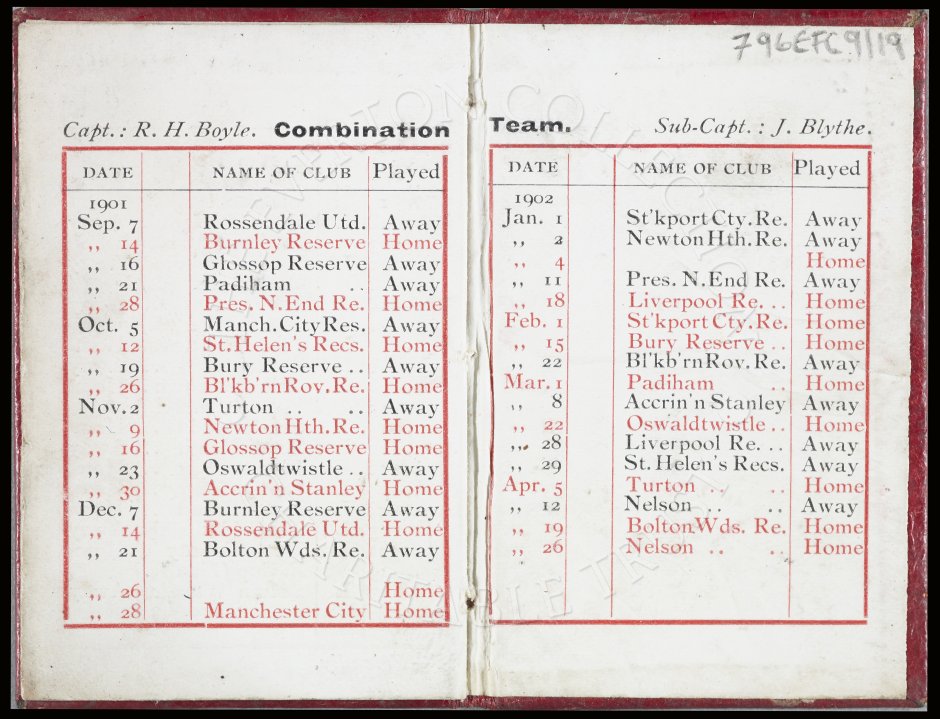 796EFC9/19
Capt.: R. H. Boyle. Combination
DATE NAME OF CLUB Played
1901
Sep. 7 Rossendale Utd. Away
,, 14 Burnley Reserve Home
,, 16 Glossop Reserve Away
,, 21 Padiham .. Away
,, 28 Pres. N. End Re. Home
Oct. 5 Manch. City Res. Away
,, 12 St. Helen's Recs. Home
,, 19 Bury Reserve .. Away
,, 26 Bl'kb'rn Rov. Re. Home
Nov. 2 Turton .. .. Away
,, 9 Newton Hth. Re. Home
,, 16 Glossop Reserve Home
,, 23 Oswaldtwistle .. Away
,, 30 Accrin'n Stanley Home
Dec. 7 Burnley Reserve Away
,, 14 Rossendale Utd. Home
,, 21 Bolton Wds. Re. Away
,, 26 Home
,, 28 Manchester City Home
Team. Sub-Capt.: J. Blythe.
DATE NAME OF CLUB Played
1902
Jan. 1 St'kport Cty. Re. Away
,, 2 Newton Hth. Re. Away
,, 4 Home
,, 11 Pres. N. End Re. Away
,, 18 Liverpool Re. .. Home
Feb. 1 St'kport Cty. Re. Home
,, 15 Bury Reserve .. Home
,, 22 Bl'kb'rn Rov. Re. Away
Mar. 1 Padiham .. Home
,, 8 Accrin'n Stanley Away
,, 22 Oswaldtwistle .. Home
,, 28 Liverpool Re. .. Away
,, 29 St. Helen's Recs. Away
Apr. 5 Turton .. .. Home
,, 12 Nelson .. .. Away
,, 19 Bolton Wds. Re. Home
,, 26 Nelson .. .. Home
EVERTON COLLECTION
CHARITABLE TRUST